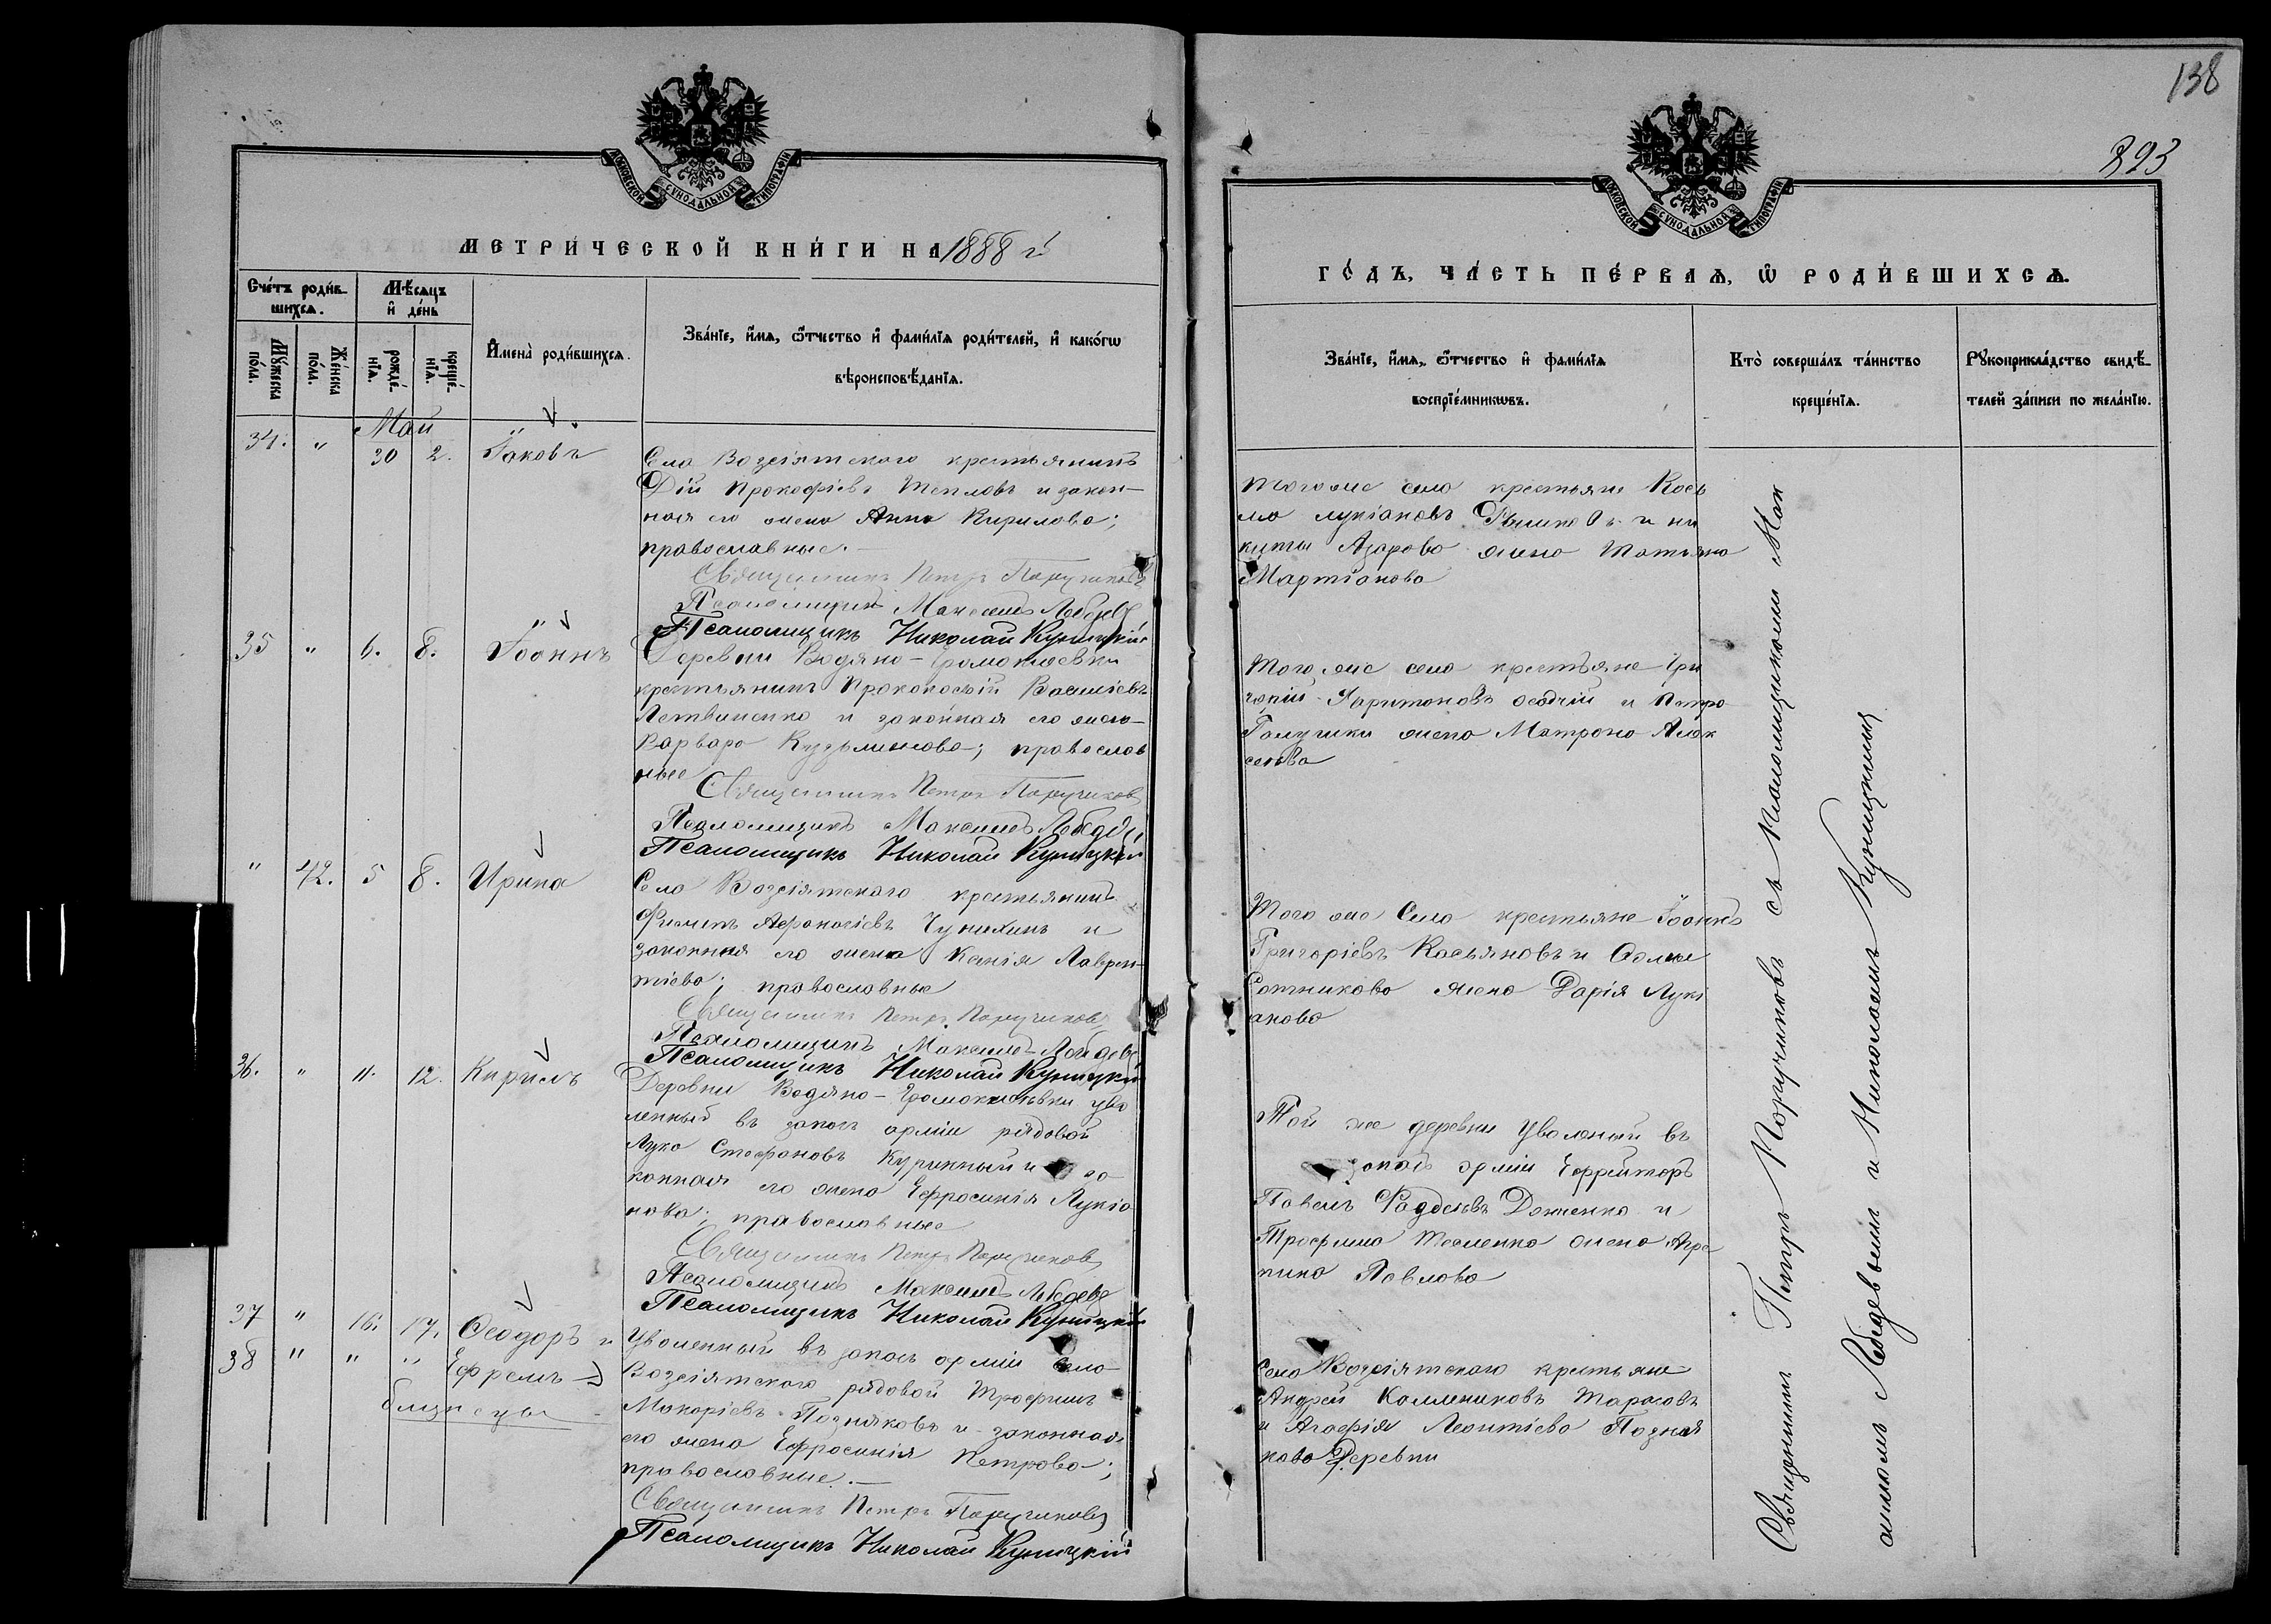 138
893
МОСКОВСКОЙ СУНОДАЛЬНОЙ ТИПОГРАФІИ
МЕТРИЧЕСКОЙ КНИГИ НА 1888 й
Счетъ родившихся.
Мѣсяцъ и день
Мужеска пола.
Женска пола.
рожденія.
крещенія.
Имена родившихся.
Званіе, имя, отчество и фамилія родителей, и какогѡ
вѣроисповѣданія.
Май
34. " 30 2. Іаковъ
Села Возсіятского крестьянинъ
Дій Прокофіевъ Тепловъ и закон-
ная его жена Анна Кирилова;
православные.
Священникъ Петръ Поручиковъ
Псаломщикъ Максимъ Лебедевъ
Псаломщикъ Николай Куницкій
35 " 6. 8. Іоаннъ
Деревни Водяно-Громоклеевки
крестьянинъ Прокопій Василіевъ
Литвиненко и законная его жена
Варвара Кузьминова; православ
ные
Священникъ Петръ Поручиковъ
Псаломщикъ Максимъ Лебедевъ
Псаломщикъ Николай Куницкій
" 42. 5 8. Ирина
Села Возсіятского крестьянинъ
Филиппъ Афанасіевъ Чунихинъ и
законная его жена Ксенія Лаврен-
тіева; православные
Священникъ Петръ Поручиковъ
Псаломщикъ Максимъ Лебедевъ
Псаломщикъ Николай Куницкій
36. " 11. 12. Кирилъ
Деревни Водяно-Громоклеевки уво
ленный въ запасъ арміи рядовой
Лука Стефановъ Куринный и за-
конная его жена Ефросинія Лукіа
нова; православные
Священникъ Петръ Поручиковъ
Псаломщикъ Максимъ Лебедевъ
Псаломщикъ Николай Куницкій
37 " 16. 17. Ѳеодоръ и
38 " " " Ефремъ
близнецы
Уволенный въ запасъ арміи села
Возсіятского рядовой Трофимъ
Макаріевъ Позняковъ и законная
его жена Ефросинія Петрова;
православные.
Священникъ Петръ Поручиковъ
Псаломщикъ Николай Куницкій
МОСКОВСКОЙ СУНОДАЛЬНОЙ ТИПОГРАФІИ
ГОДЪ, ЧАСТЬ ПЕРВАЯ, Ѡ РОДИВШИХСЯ.
Званіе, имя, отчество и фамилія
воспріемникѡвъ.
Кто совершалъ таинство
крещенія.
Рукоприкладство свидѣ-
телей записи по желанію.
Того же села крестьяне Кось
ма Лукіановъ и Ни
киты Азарова жена Татіана
Мартіанова
Того же села крестьяне Гри
горій Харитоновъ Осадчій и Петра
Галушки жена Матрона Алек
сеева
Того же Села крестьяне Іоаннъ
Григоріевъ Касьяновъ и
Сотникова жена Дарія Лукі
анова
Той же деревни Уволеный въ
запасъ арміи Ефрейторъ
Павелъ Фаддеевъ Донченко и
Трофима Тесленка жена Агре
пина Павлова
Села Возсіятского крестьяне
Андрей Каллениковъ Тарасовъ
и Агафія Леонтіева Позня
кова Деревни
Священникъ Петръ Поручиковъ съ Псаломщиками Мак
симомъ Лебедевымъ и Николаемъ Куницкимъ